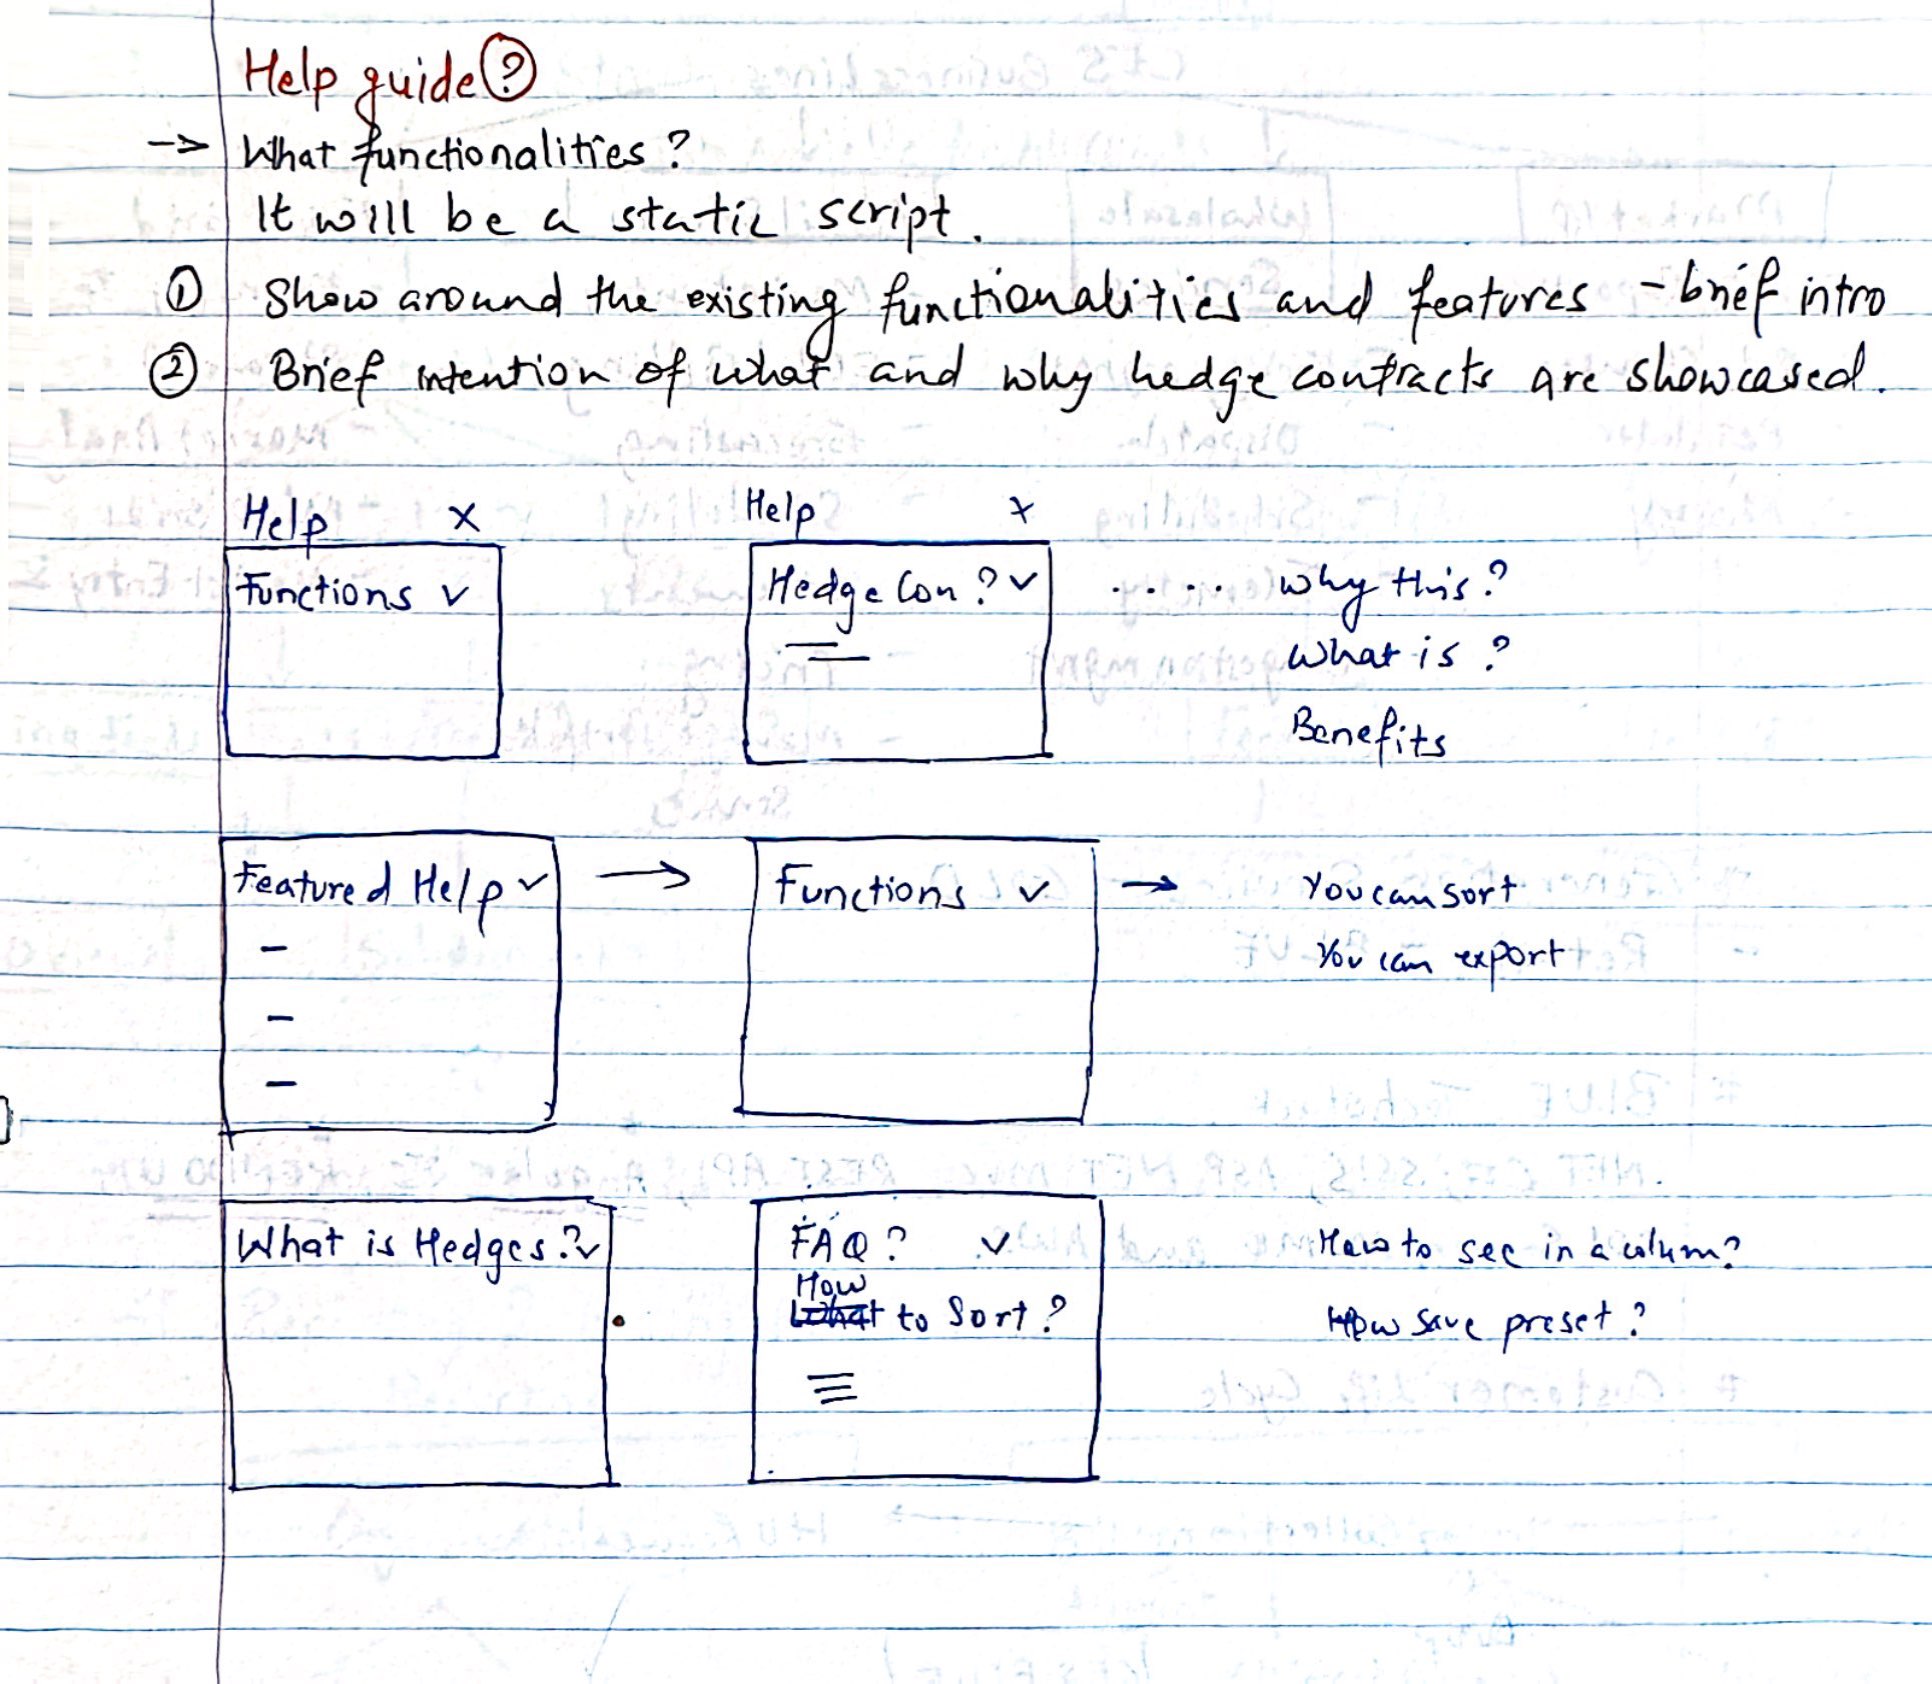 Help guide ?
-> What functionalities?
It will be a static script.
① Show around the existing functionalities and features - brief intro
② Brief intention of what and why hedge contracts are showcased.
Help x
Help x
Functions ✓
Hedge Con ? ✓ ..... why this?
What is ?
Benefits
Featured Help ✓ → Functions ✓ → You can sort
You can export
What is Hedges? ✓
FAQ? ✓ How to see in a colum?
How
What to Sort? How save preset?